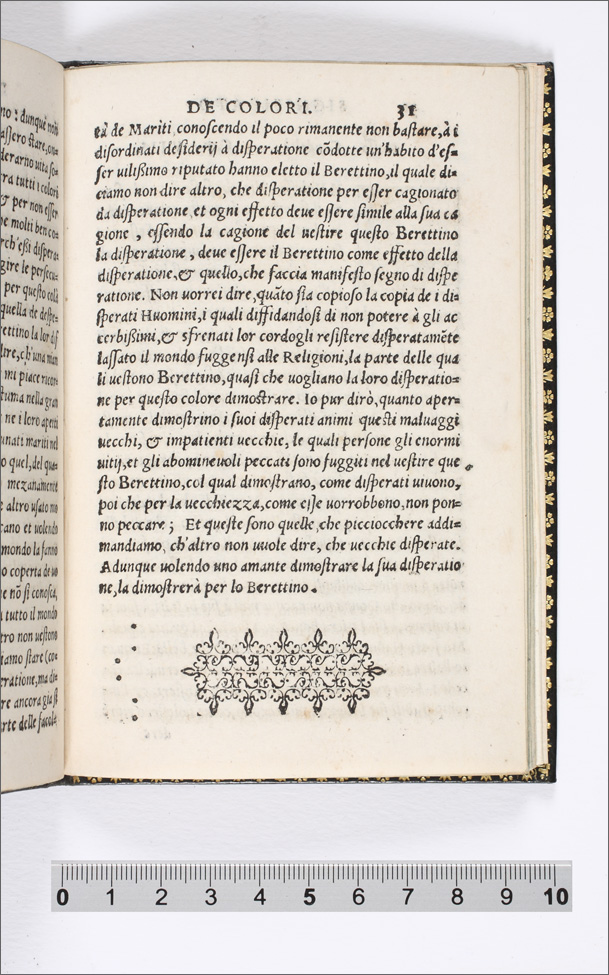 no : dunquè molti
assero stare, on-
derarno uita so-
ra tutti i colori
& per non esser
he molti ben co-
rch'essi dispera-
gire le persecu-
per questo colo
quella de dispe-
rettino la lor dis
dire, ch'una man
mi piace ricore
stuma nella gran
ne i loro aperti
unati mariti nel
o quel, del qua-
mezanamente
e altro usato no
cano et uolendo
mondo la fanno
o coperta de uo
e nō si conosca,
i tutto il mondo
ero non uestono
iamo stare (co-
eratione, ma di-
re ancora gia st
arte delle facolt
DE COLORI. 31
tà de Mariti conoscendo il poco rimanente non bastare, à i
disordinati desiderij à disperatione cōdotte un'habito d'es=
ser uilissimo riputato hanno eletto il Berettino, il quale di=
ciamo non dire altro, che disperatione per esser cagionato
da disperatione et ogni effetto deue essere simile alla sua ca
gione , essendo la cagione del uestire questo Berettino
la disperatione , deue essere il Berettino come effetto della
disperatione, & quello, che faccia manifesto segno di dispe
ratione. Non uorrei dire, quāto sia copioso la copia de i di=
sperati Huomini, i quali diffidandosi di non potere à gli ac
cerbissimi, & sfrenati lor cordogli resistere disperatamēte
lassato il mondo fuggensi alle Religioni, la parte delle qua
li uestono Berettino, quasi che uogliano la loro disperatio=
ne per questo colore dimostrare. Io pur dirò, quanto aper=
tamente dimostrino i suoi disperati animi questi maluaggi
uecchi, & impatienti uecchie, le quali persone gli enormi
uitij, et gli abomineuoli peccati sono fuggiti nel uestire que
sto Berettino, col qual dimostrano, come disperati uiuono,
poi che per la uecchiezza, come esse uorrobbono, non pon=
no peccare ; Et queste sono quelle, che picciocchere addi=
mandiamo, ch'altro non uuole dire, che uecchie disperate.
Adunque uolendo uno amante dimostrare la sua disperatio
ne, la dimostrerà per lo Berettino.
0 1 2 3 4 5 6 7 8 9 10